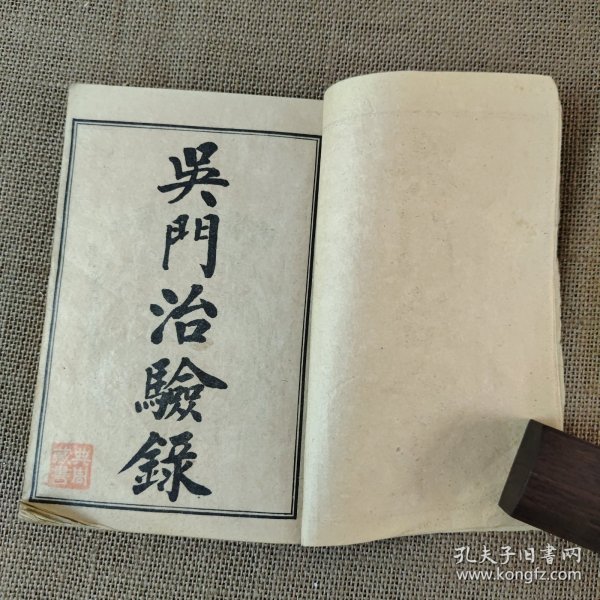 吳門治驗錄
孔夫子旧书网
www.kongfz.com